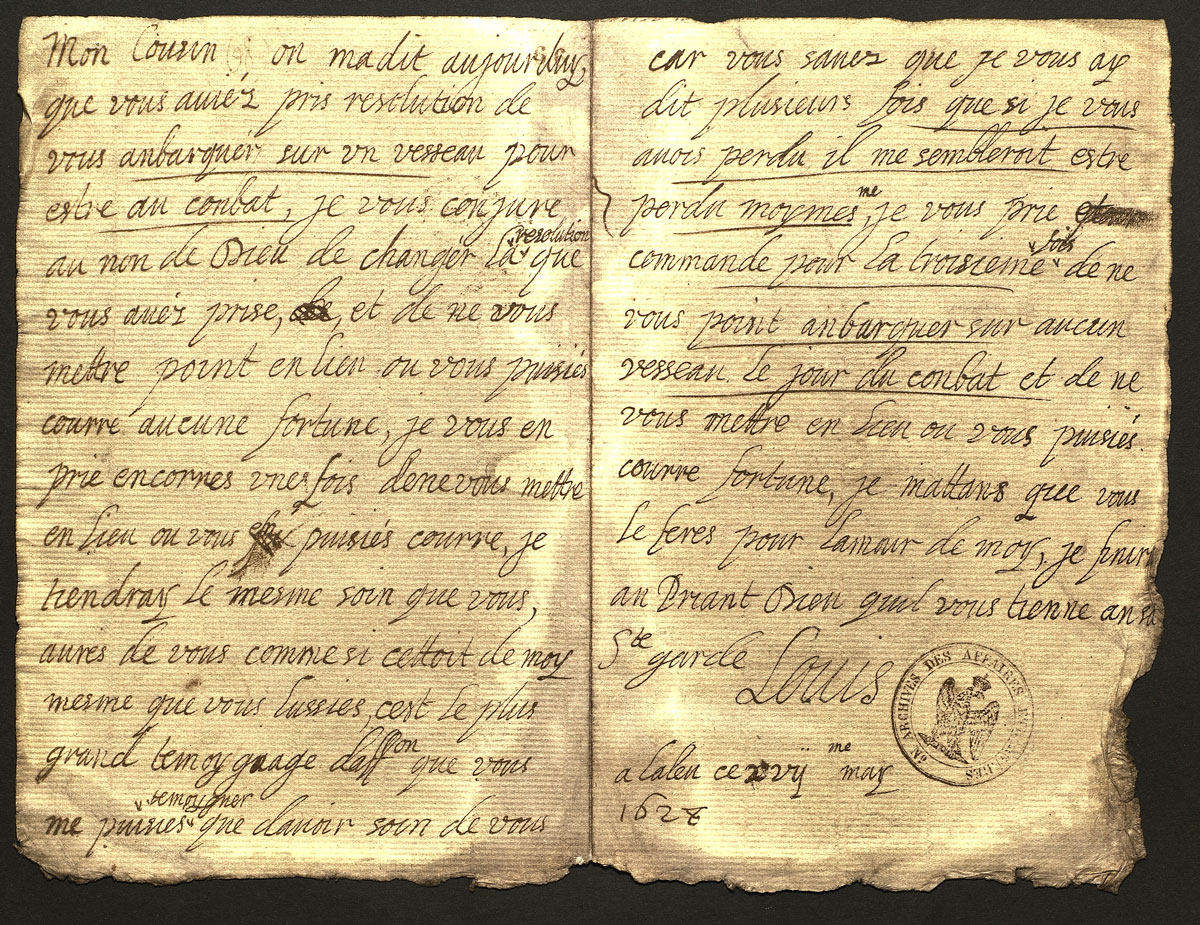 Mon Cousin on madit aujourduy,
que vous auiéz pris resolution de
vous anbarquér sur vn vesseau pour
estre au conbat, je vous conjure
au non de Dieu de changér la resolution que
vous auéz prise, et de ne vous
mettre point en lieu ou vous puisiés
courre aucune fortune, je vous en
prie encornes vnes fois dene vous mettre
en lieu ou vous puisiés courre, je
tiendray le mesme soin que vous,
aures de vous comme si cettoit de moy
mesme que vous lussies, cest le plus
grand temoygnage daffon que vous
me puisies temoygner que dauoir soin de vous
car vous sauez que je vous ay
dit plusieurs fois que si je vous
auois perdu il me sembleroit estre
perdu moymesme, je vous prie et
commande pour la troisieme fois de ne
vous point anbarquer sur aucun
vesseau le jour du conbat et de ne
vous mettre en lieu ou vous puisiés
courre fortune, je mattans que vous
le feres pour lamour de moy, je finir
an Priant Dieu quil vous tienne an sa
Ste garde Louis
a Laleu ce xvij me may
1628
ARCHIVES DES AFFAIRES ETRANGERES